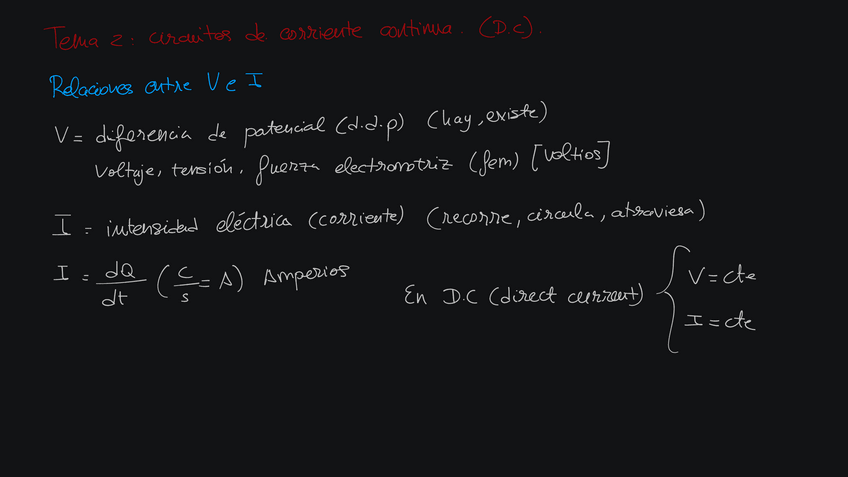 Tema 2: circuitos de corriente continua. (D.C).
Relaciones entre V e I
V = diferencia de potencial (d.d.p) (hay, existe)
Voltaje, tensión, fuerza electromotriz (fem) [Voltios]
I = intensidad eléctrica (corriente) (recorre, circula, atraviesa)
I = dQ/dt (C/s = A) Amperios
En D.C (direct current) { V = cte
I = cte